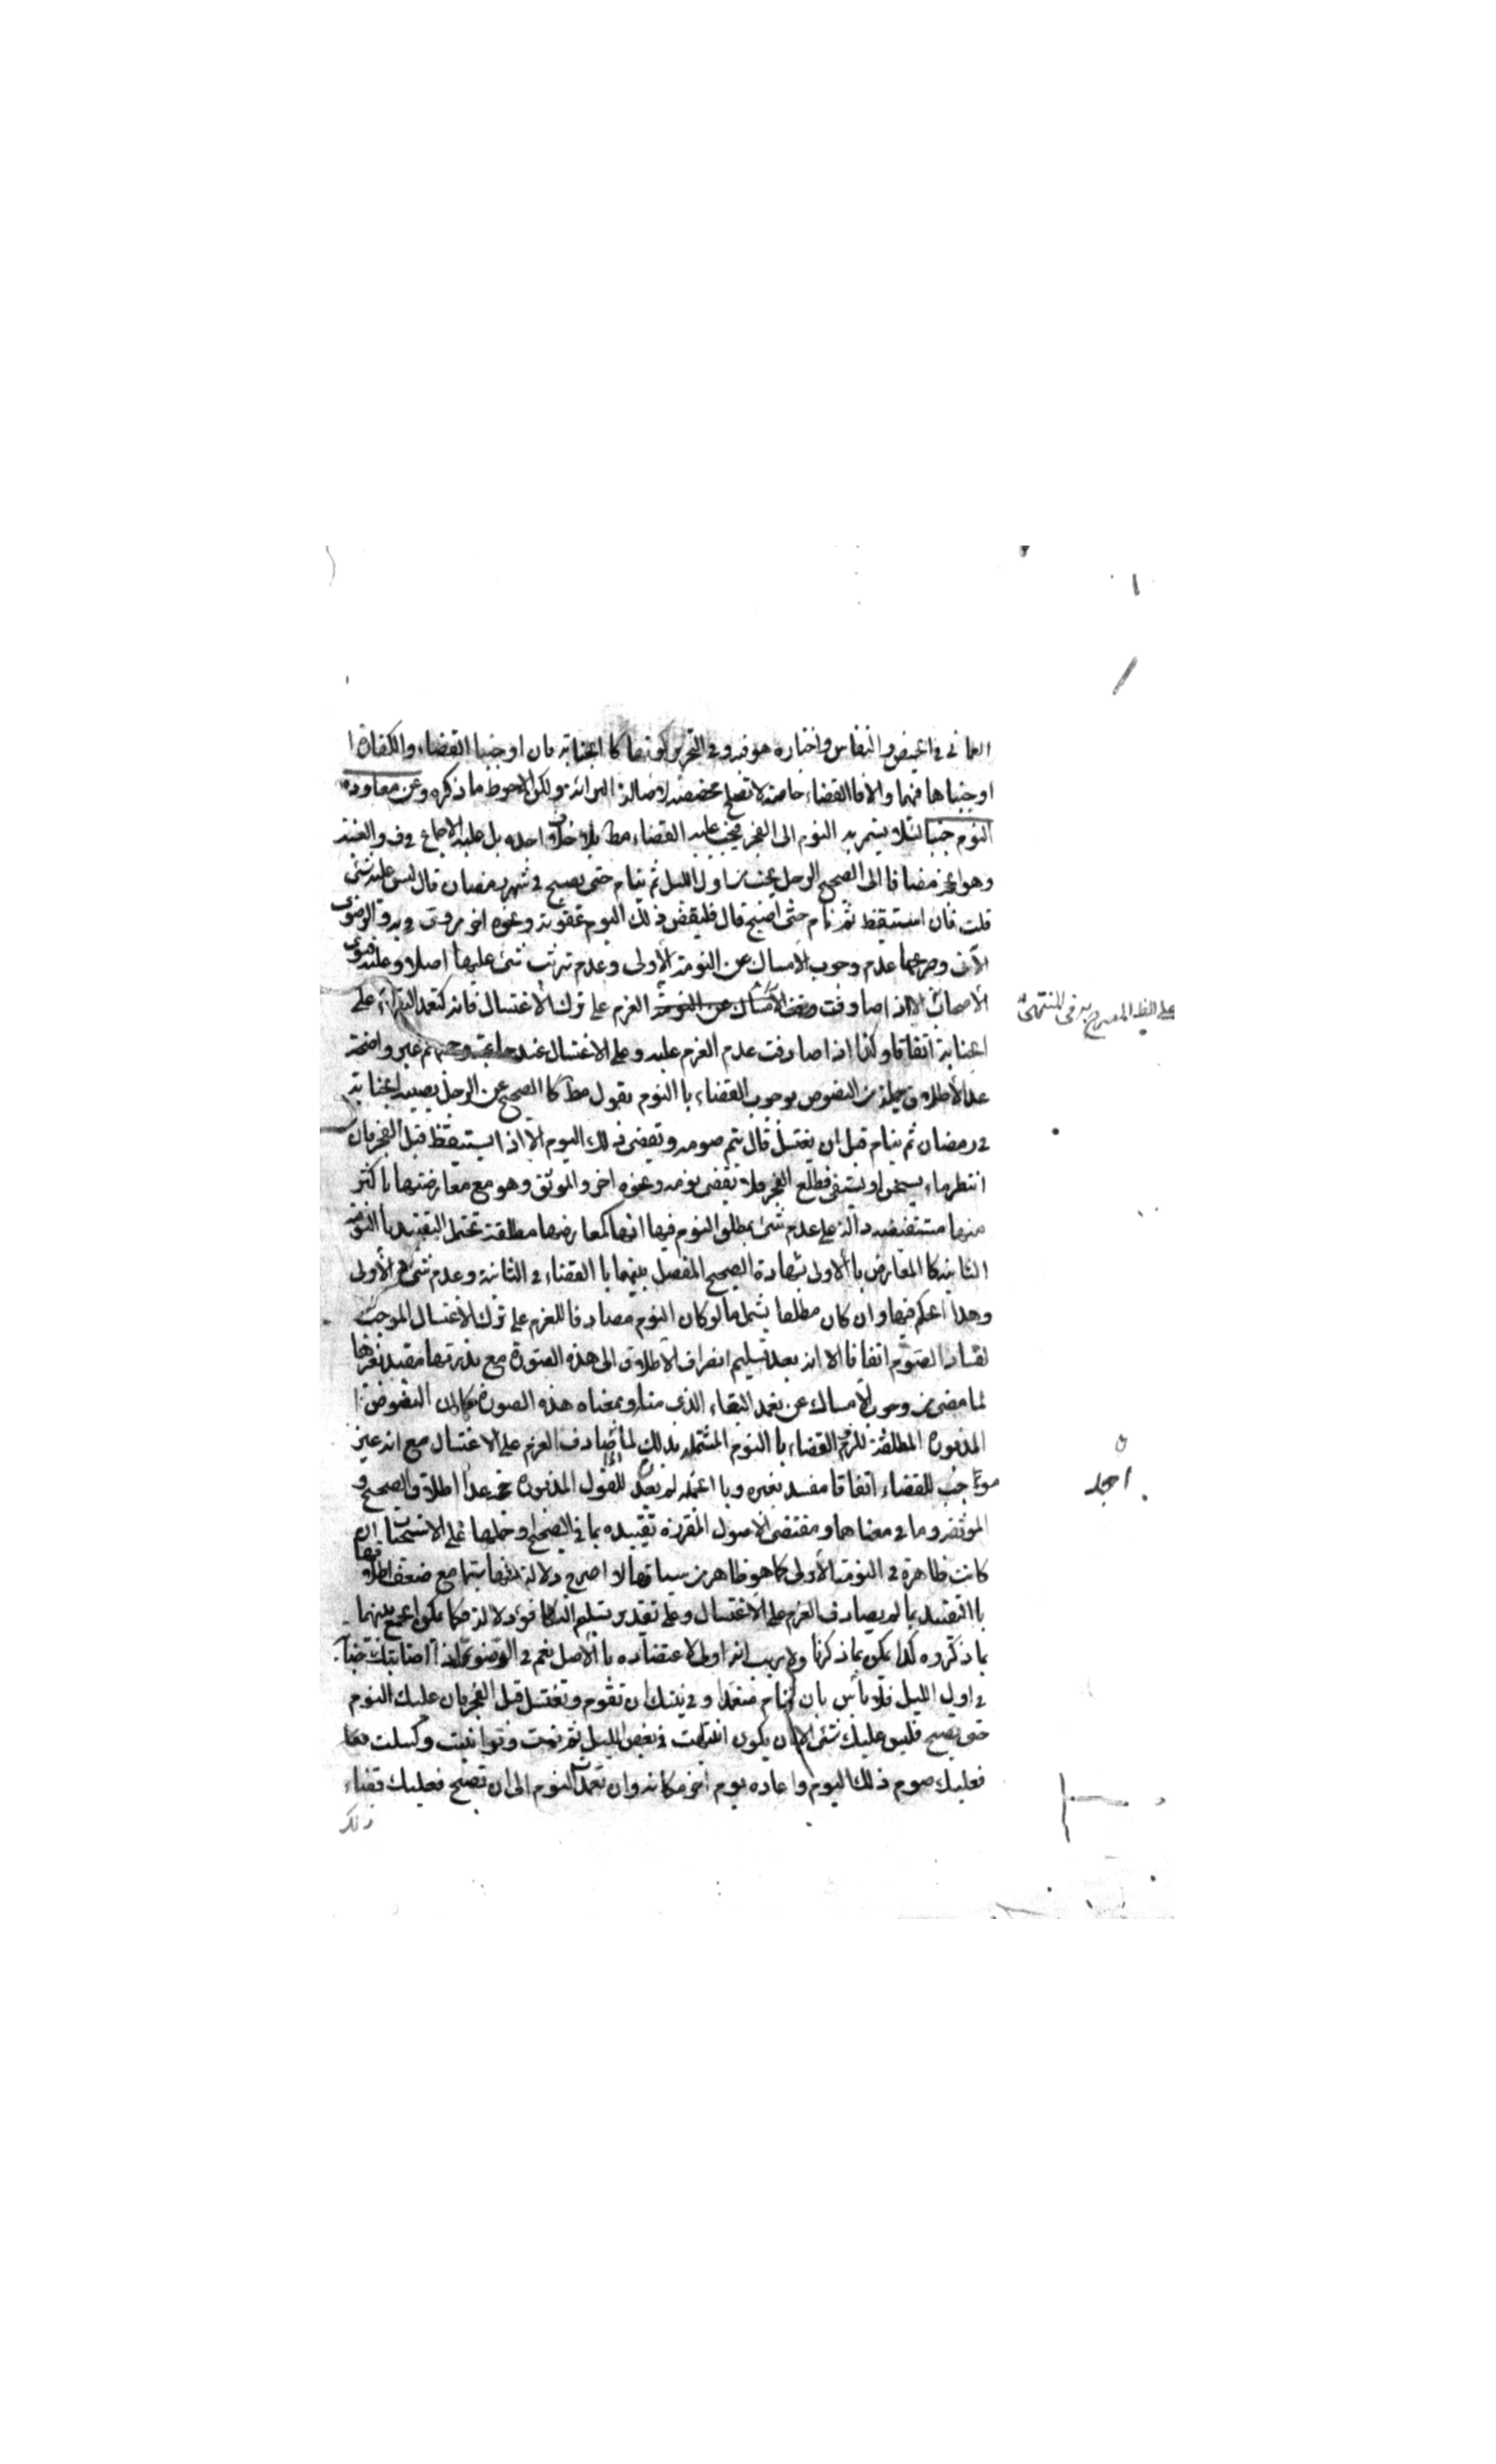 العماني في الحيض والنفاس واختاره هو فيه وفي التحرير لكونهما كالجنابة فان اوجبنا القضاء والكفارة
اوجبناها فيهما والا فالقضاء خاصة لا تصلح مخصصة لاصالة البرائة ولكن الاحوط ما ذكره وعن معاودة
النوم جنبا لئلا يستمر به النوم الى الفجر فيجب عليه القضاء مط بلا خلاف اجده بل عليه الاجماع في ف والغنية
وهو الحجة مضافا الى الصحيح الرجل يجنب من اول الليل ثم ينام حتى يصبح في شهر رمضان قال ليس عليه شئ
قلت فان استيقظ ثم نام حتى اصبح قال فليقض ذلك اليوم عقوبة ونحوه اخر مروي في يه والرضوي
الآتي وصريحهما عدم وجوب الامساك عن النومة الاولى وعدم ترتب شئ عليها اصلا وعليه فتوى
الاصحاب الا اذا صادفت العزم على ترك الاغتسال فانه كتعمد البقاء على
الجنابة اتفاقا وكذا اذا صادفت عدم العزم عليه وعلى الاغتسال عند جماعة وحجتهم غير واضحة
عدا الاطلاق جملة من النصوص بوجوب القضاء بالنوم بقول مط كالصحيح عن الرجل يصيبه الجنابة
في رمضان ثم ينام قبل ان يغتسل قال يتم صومه ويقضي ذلك اليوم الا ان يستيقظ قبل الفجر فان
انتظر ماء يسخن او يستقي فطلع الفجر فلا يقضي يومه ونحوه اخر والموثق وهو مع معارضتها باكثر
منها مستفيضة دالة على عدم شئ بمطلق النوم فيها انها كمعارضها مطلقة تحتمل التقييد بالنومة
الثانية كالمعارض بالاولى بشهادة الصحيح المفصل بينهما بالقضاء في الثانية وعدم شئ في الاولى
وهذا الحكم فيها وان كان مطلقا يشمل ما لو كان النوم مصادفا للعزم على ترك الاغتسال الموجب
لفساد الصوم اتفاقا الا انه بعد تسليم انصراف الاطلاق الى هذه الصورة مع ندرتها مقيد بغيرها
لما مضى من وجوب الامساك عن تعمد البقاء الذي بمعناه هذه الصورة كما ان النصوص
المذبورة المطلقة للزوم القضاء بالنوم المشتمله بذلك لما صادف العزم على الاغتسال مع انه غير
موجب للقضاء اتفاقا مقيد بغيره وبالجملة لم نجد للقول المذبور حجة عدا اطلاق الصحيح و
الموثق وما في معناهما ومقتضى الاصول المقررة تقييده بما في الصحاح وحملها على الاستحباب ان
كانت ظاهرة في النومة الاولى كما هو ظاهر من سياقها لا صريح دلالة مع ضعف اطلاقها
بالتقييد بما لم يصادف العزم على الاغتسال وعلى تقدير تسليم التكافؤ دلالة فكما يمكن الجمع بينهما
بما ذكروه كذا يمكن بما ذكرنا ولا ريب انه اولى لاعتضاده بالاصل نعم في الرضوي اذا اصابتك جنابة
في اول الليل فلا بأس بان تنام متعمدا وفي نيتك ان تقوم وتغتسل قبل الفجر فان غلبك النوم
حتى تصبح فليس عليك شئ الا ان يكون انتبهت في بعض الليل ثم نمت وتوانيت وكسلت
فعليك صوم ذلك اليوم واعادة يوم اخر مكانه وان تعمدت النوم الى ان تصبح فعليك قضاء
ذلك
على الظ المصرح به في المنتهى
اجد